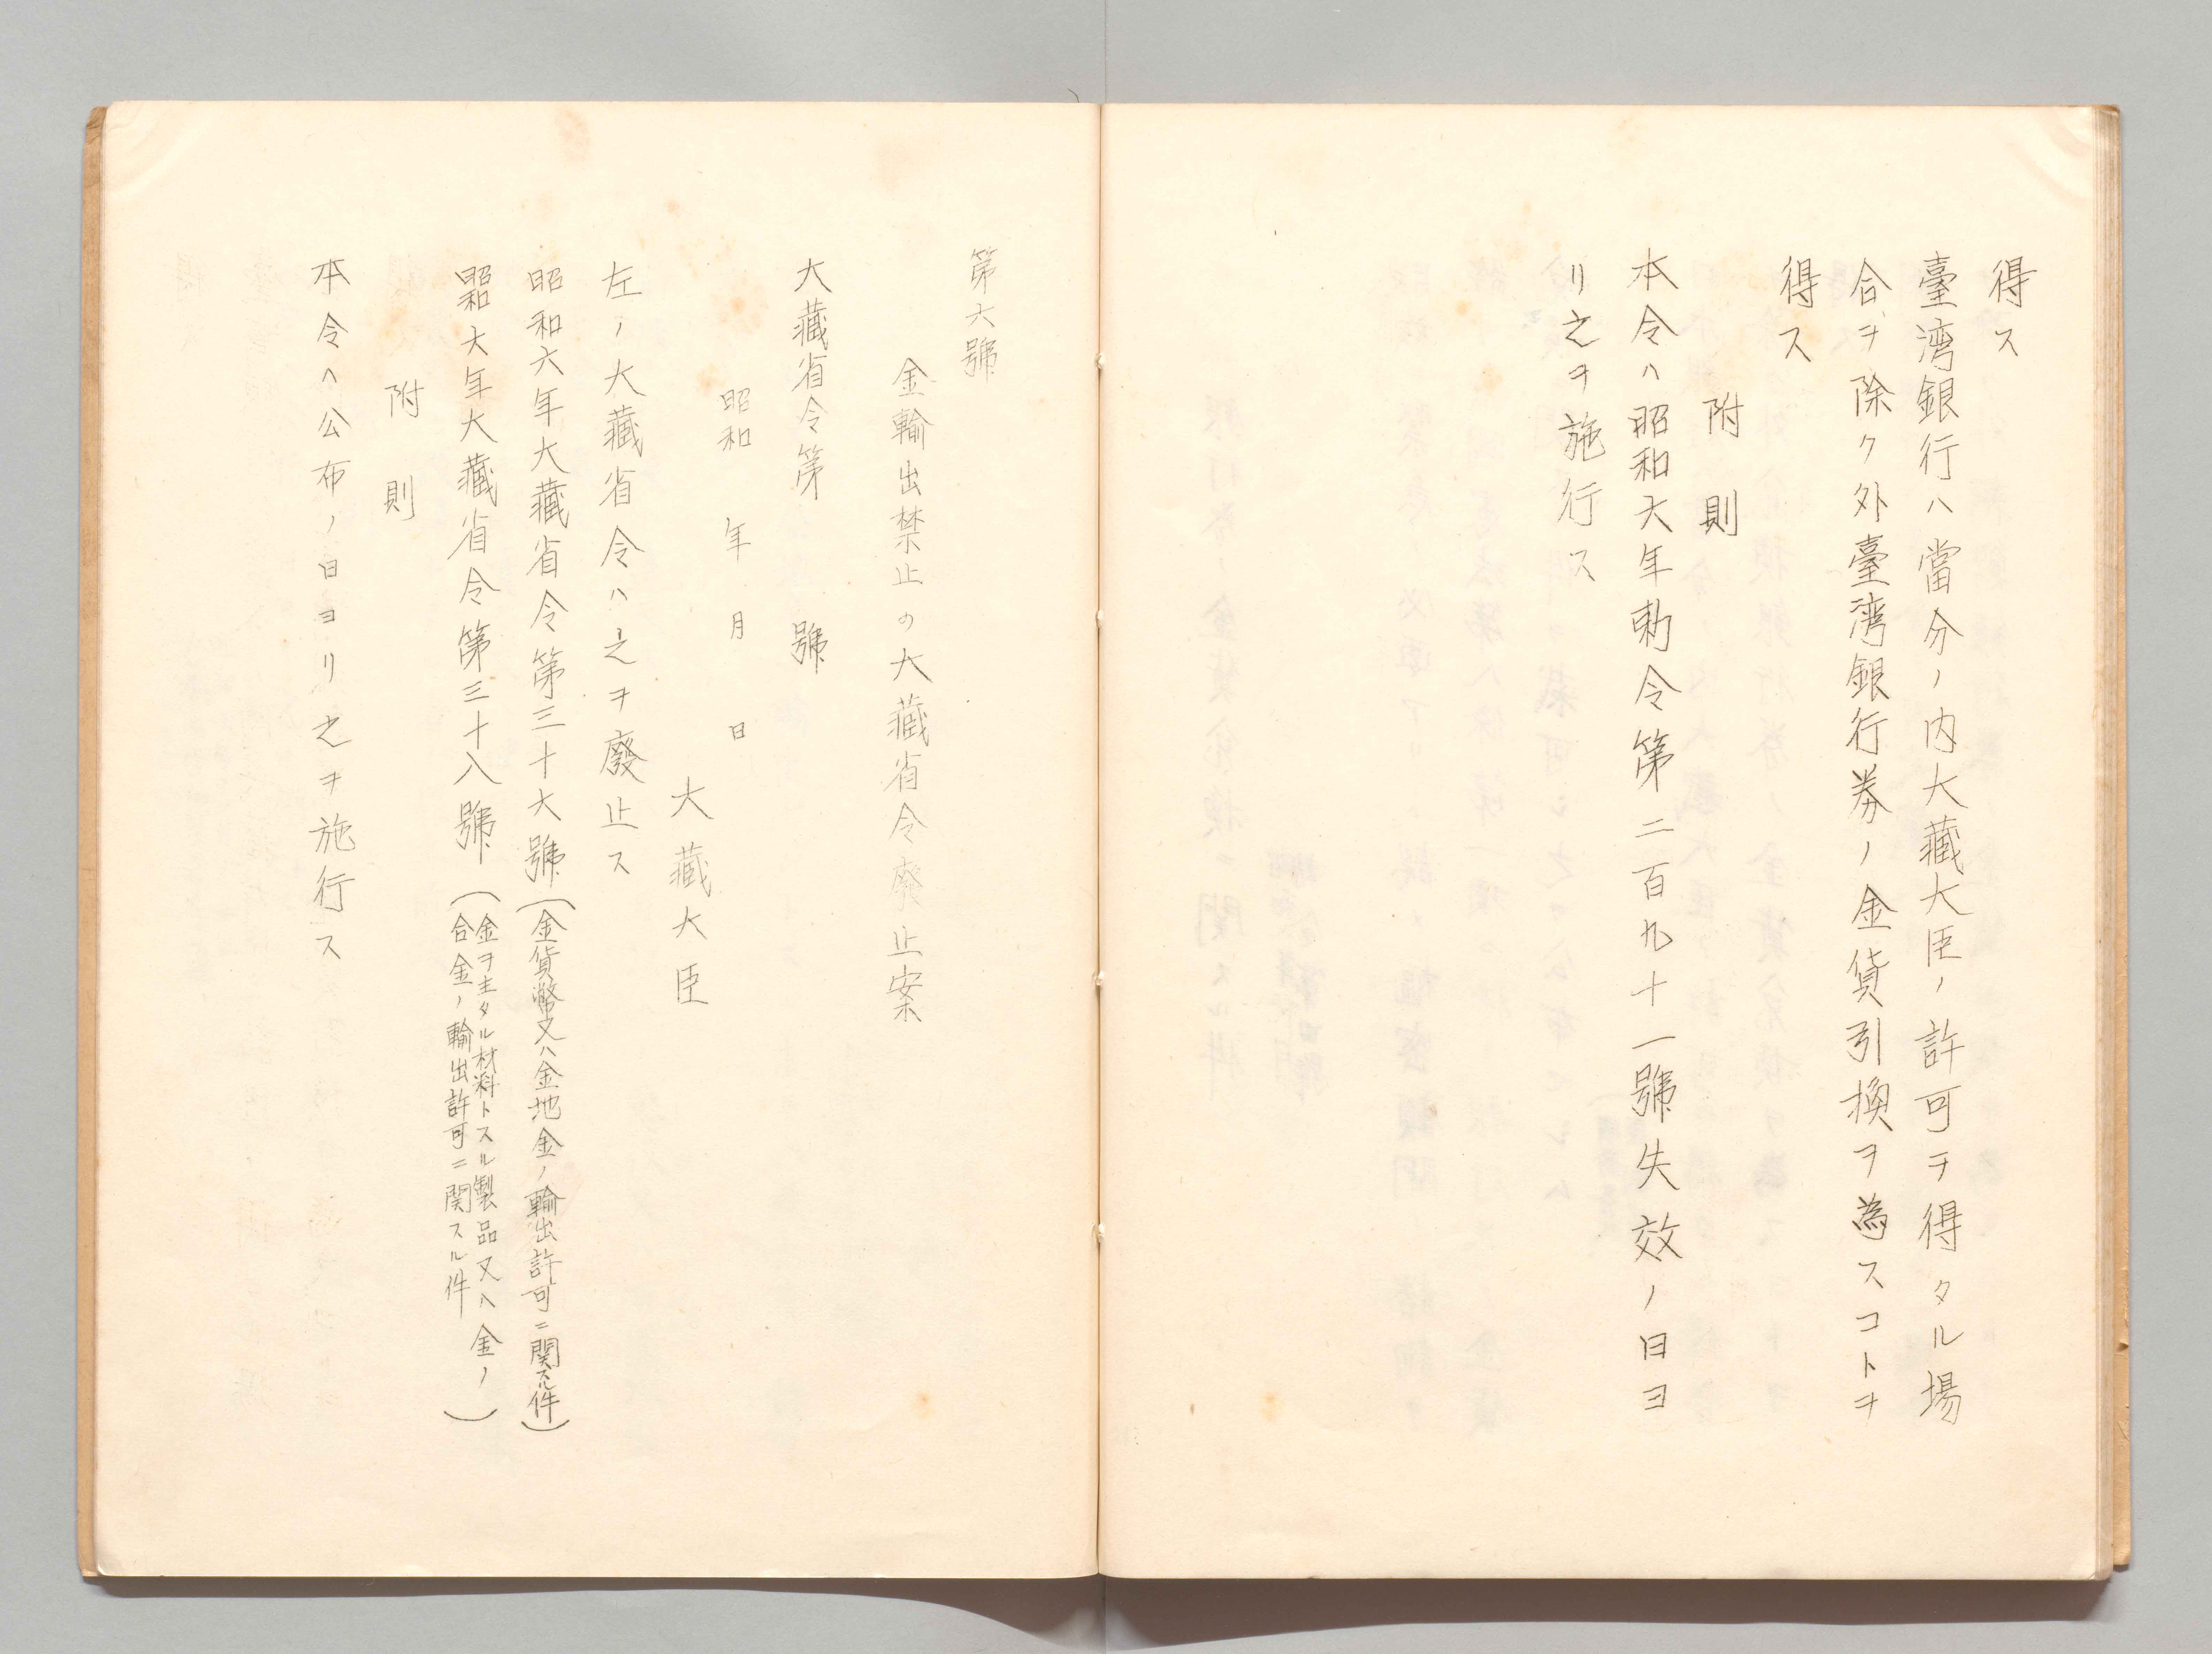 得ス
臺湾銀行ハ當分ノ内大藏大臣ノ許可ヲ得タル場
合ヲ除ク外臺湾銀行券ノ金貨引換ヲ為スコトヲ
得ス
附則
本令ハ昭和六年勅令第二百九十一號失效ノ日ヨ
リ之ヲ施行ス
第六號
金輸出禁止の大藏省令廢止案
大藏省令第　　號
昭和　年　月　日
大藏大臣
左ノ大藏省令ハ之ヲ廢止ス
昭和六年大藏省令第三十六號(金貨幣又ハ金地金ノ輸出許可ニ関スル件)
昭和六年大藏省令第三十八號(金ヲ主タル材料トスル製品又ハ金ノ
合金ノ輸出許可ニ関スル件)
附則
本令ハ公布ノ日ヨリ之ヲ施行ス